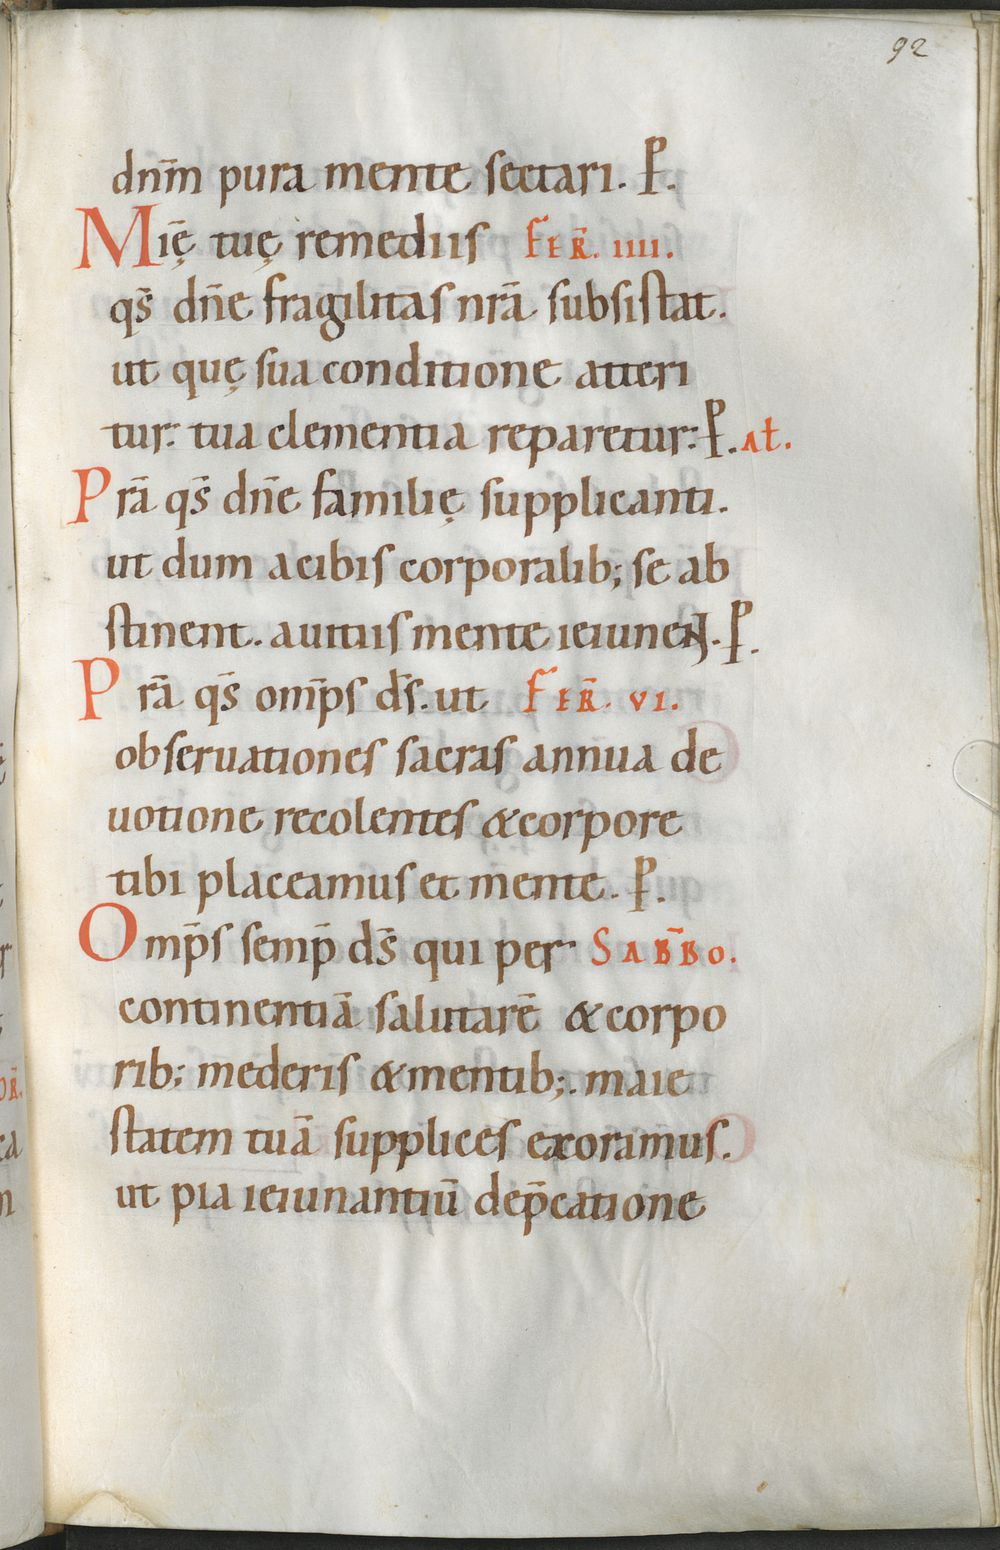 92
dnm̄ pura mente sectari. P̄.
Mię̄ tuę remediis FER̄. IIII.
qs̄ dn̄e fragilitas nrā subsistat.
ut quę sua conditione atteri
tur: tua clementia reparetur: P̄. AŁ.
Prā qs̄ dn̄e familię supplicanti.
ut dum acibis corporalib; se ab
stinent. auitiis mente ieiunent. P̄.
Prā qs̄ omp̄s ds̄. ut FER̄. VI.
obseruationes sacras annua de
uotione recolentes &corpore
tibi placeamus et mente. P̄.
Omp̄s semp̄ ds̄ qui per SABB̄O.
continentiā salutarē &corpo
rib; mederis &mentib;. maie
statem tuā supplices exoramus.
ut pia ieiunantiū dep̄catione